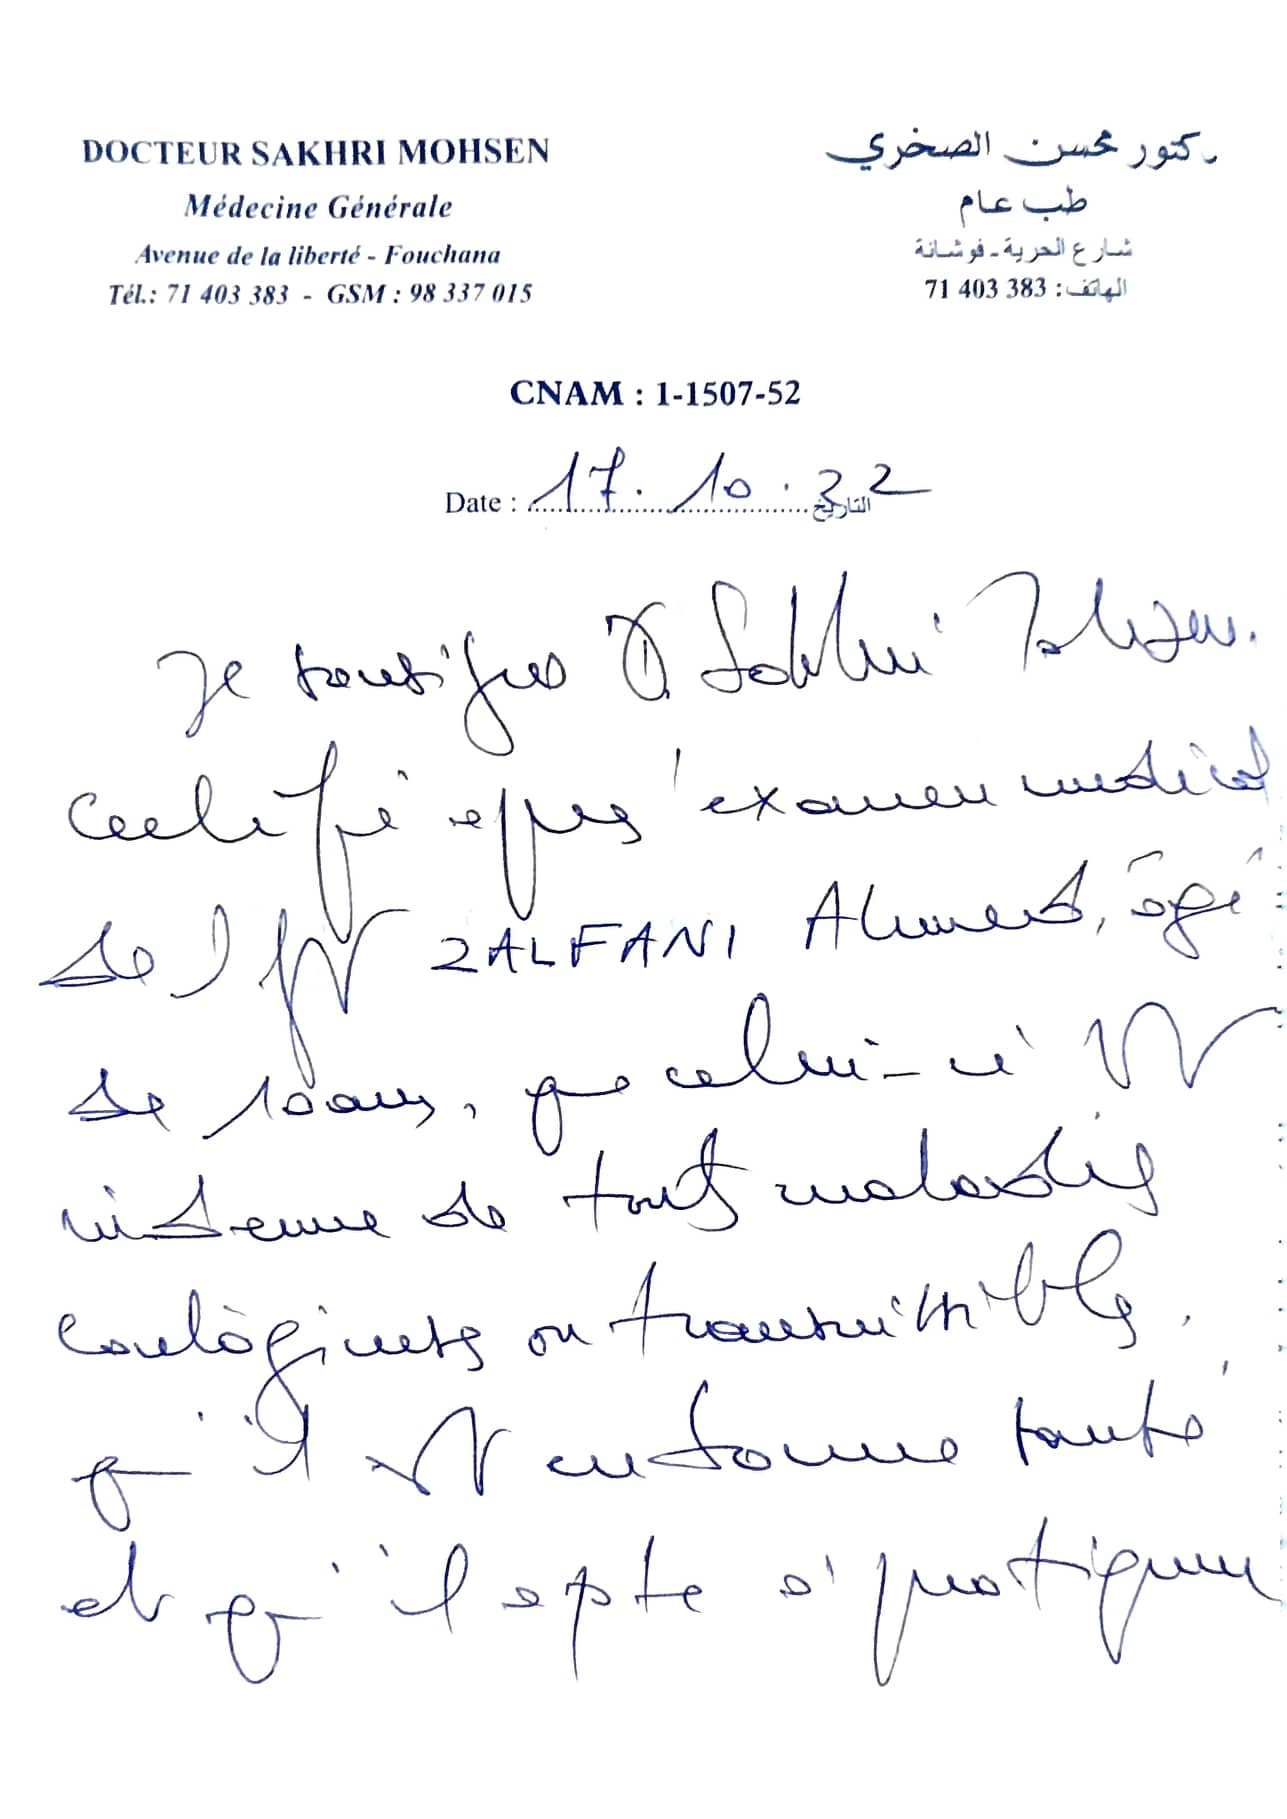 DOCTEUR SAKHRI MOHSEN
Médecine Générale
Avenue de la liberté - Fouchana
Tél.: 71 403 383 - GSM : 98 337 015
دكتور محسن الصخري
طب عام
شارع الحرية - فوشانة
الهاتف : 71 403 383
CNAM : 1-1507-52
Date : 17. 10. 22 التاريخ
Je soussigné Dr Sakhri Mohsen.
Certifie après examen médical
de l' ZALFANI Ahmed, âgé
de 10 ans, que celui-ci est
indemne de tout maladies
contagieuses ou transmissibles,
qu'il est en bonne santé
et qu'il apte à pratiquer